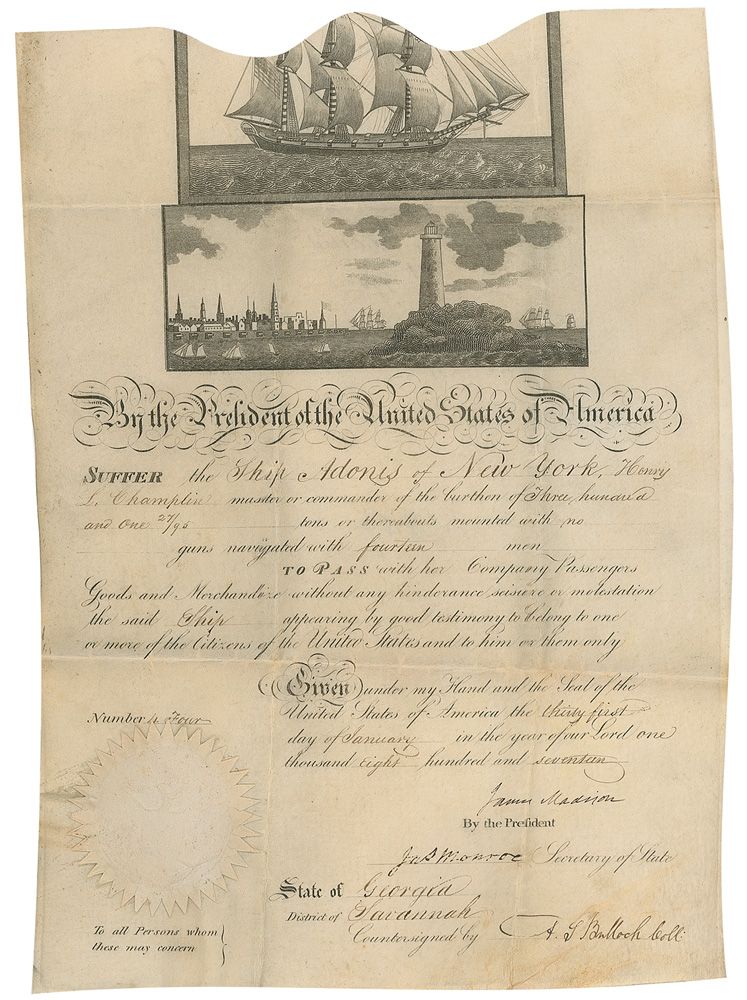 By the President of the United States of America
SUFFER the Ship Adonis of New York, Henry
L. Champlin master or commander of the burthen of Three hundred
and One 27/95 tons or thereabouts mounted with no
guns navigated with fourteen men
TO PASS with her Company Passengers
Goods and Merchandize without any hinderance seisure or molestation
the said Ship appearing by good testimony to belong to one
or more of the Citizens of the United States and to him or them only
Given under my Hand and the Seal of the
United States of America the thirty first
day of January in the year of our Lord one
thousand eight hundred and seventeen
Number 4 Four
James Madison
By the President
Jas Monroe Secretary of State
State of Georgia
District of Savannah
Countersigned by A. S Bulloch Coll:
To all Persons whom
these may concern